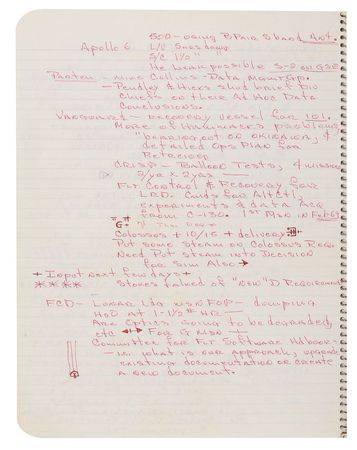 SOD - using B/Pair S band Ant.
Apollo 6 L/V Snosdown
S/C 1 1/2"
He leak possible S-2 on GSE
- Mike Collins - Data Mgmt Grp.
- Pendley & Hicks shod brief Div
Chiefs on their Ad Hoc Data
Conclusions.
Vanguard - recovery vessel for 101.
More of Hammack's problems
bearing out on Okinawa, &
detailed Ops Plan for
Retriever
CRISP - Balloon Tests, & missions
2/yr x 2 yrs
Flt Control & Recovery for
LRD. Cmds for Alt Ctl
experiments & data Acq
from C-130. 1st Msn in Feb 69
"G"
Colossus + 10/15 + delivery
Put some steam on Colossus Req.
Need Put steam into Decision
for Sim Also →
+ Input next few days +
**** Stoves talked of "new" D Requirement
FCD - Lunar Ldg msn FOP - dumping
H2O at 1-1 1/2 # HR
Are Optics going to be degraded,
etc For G Msn
Committee for Flt Software Hdbook-
- what is our approach, upgrade
existing documentation or create
a new document.